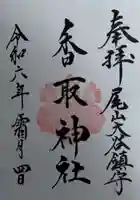 奉拝
尾山大谷鎮守
香取神社
令和六年霜月四日